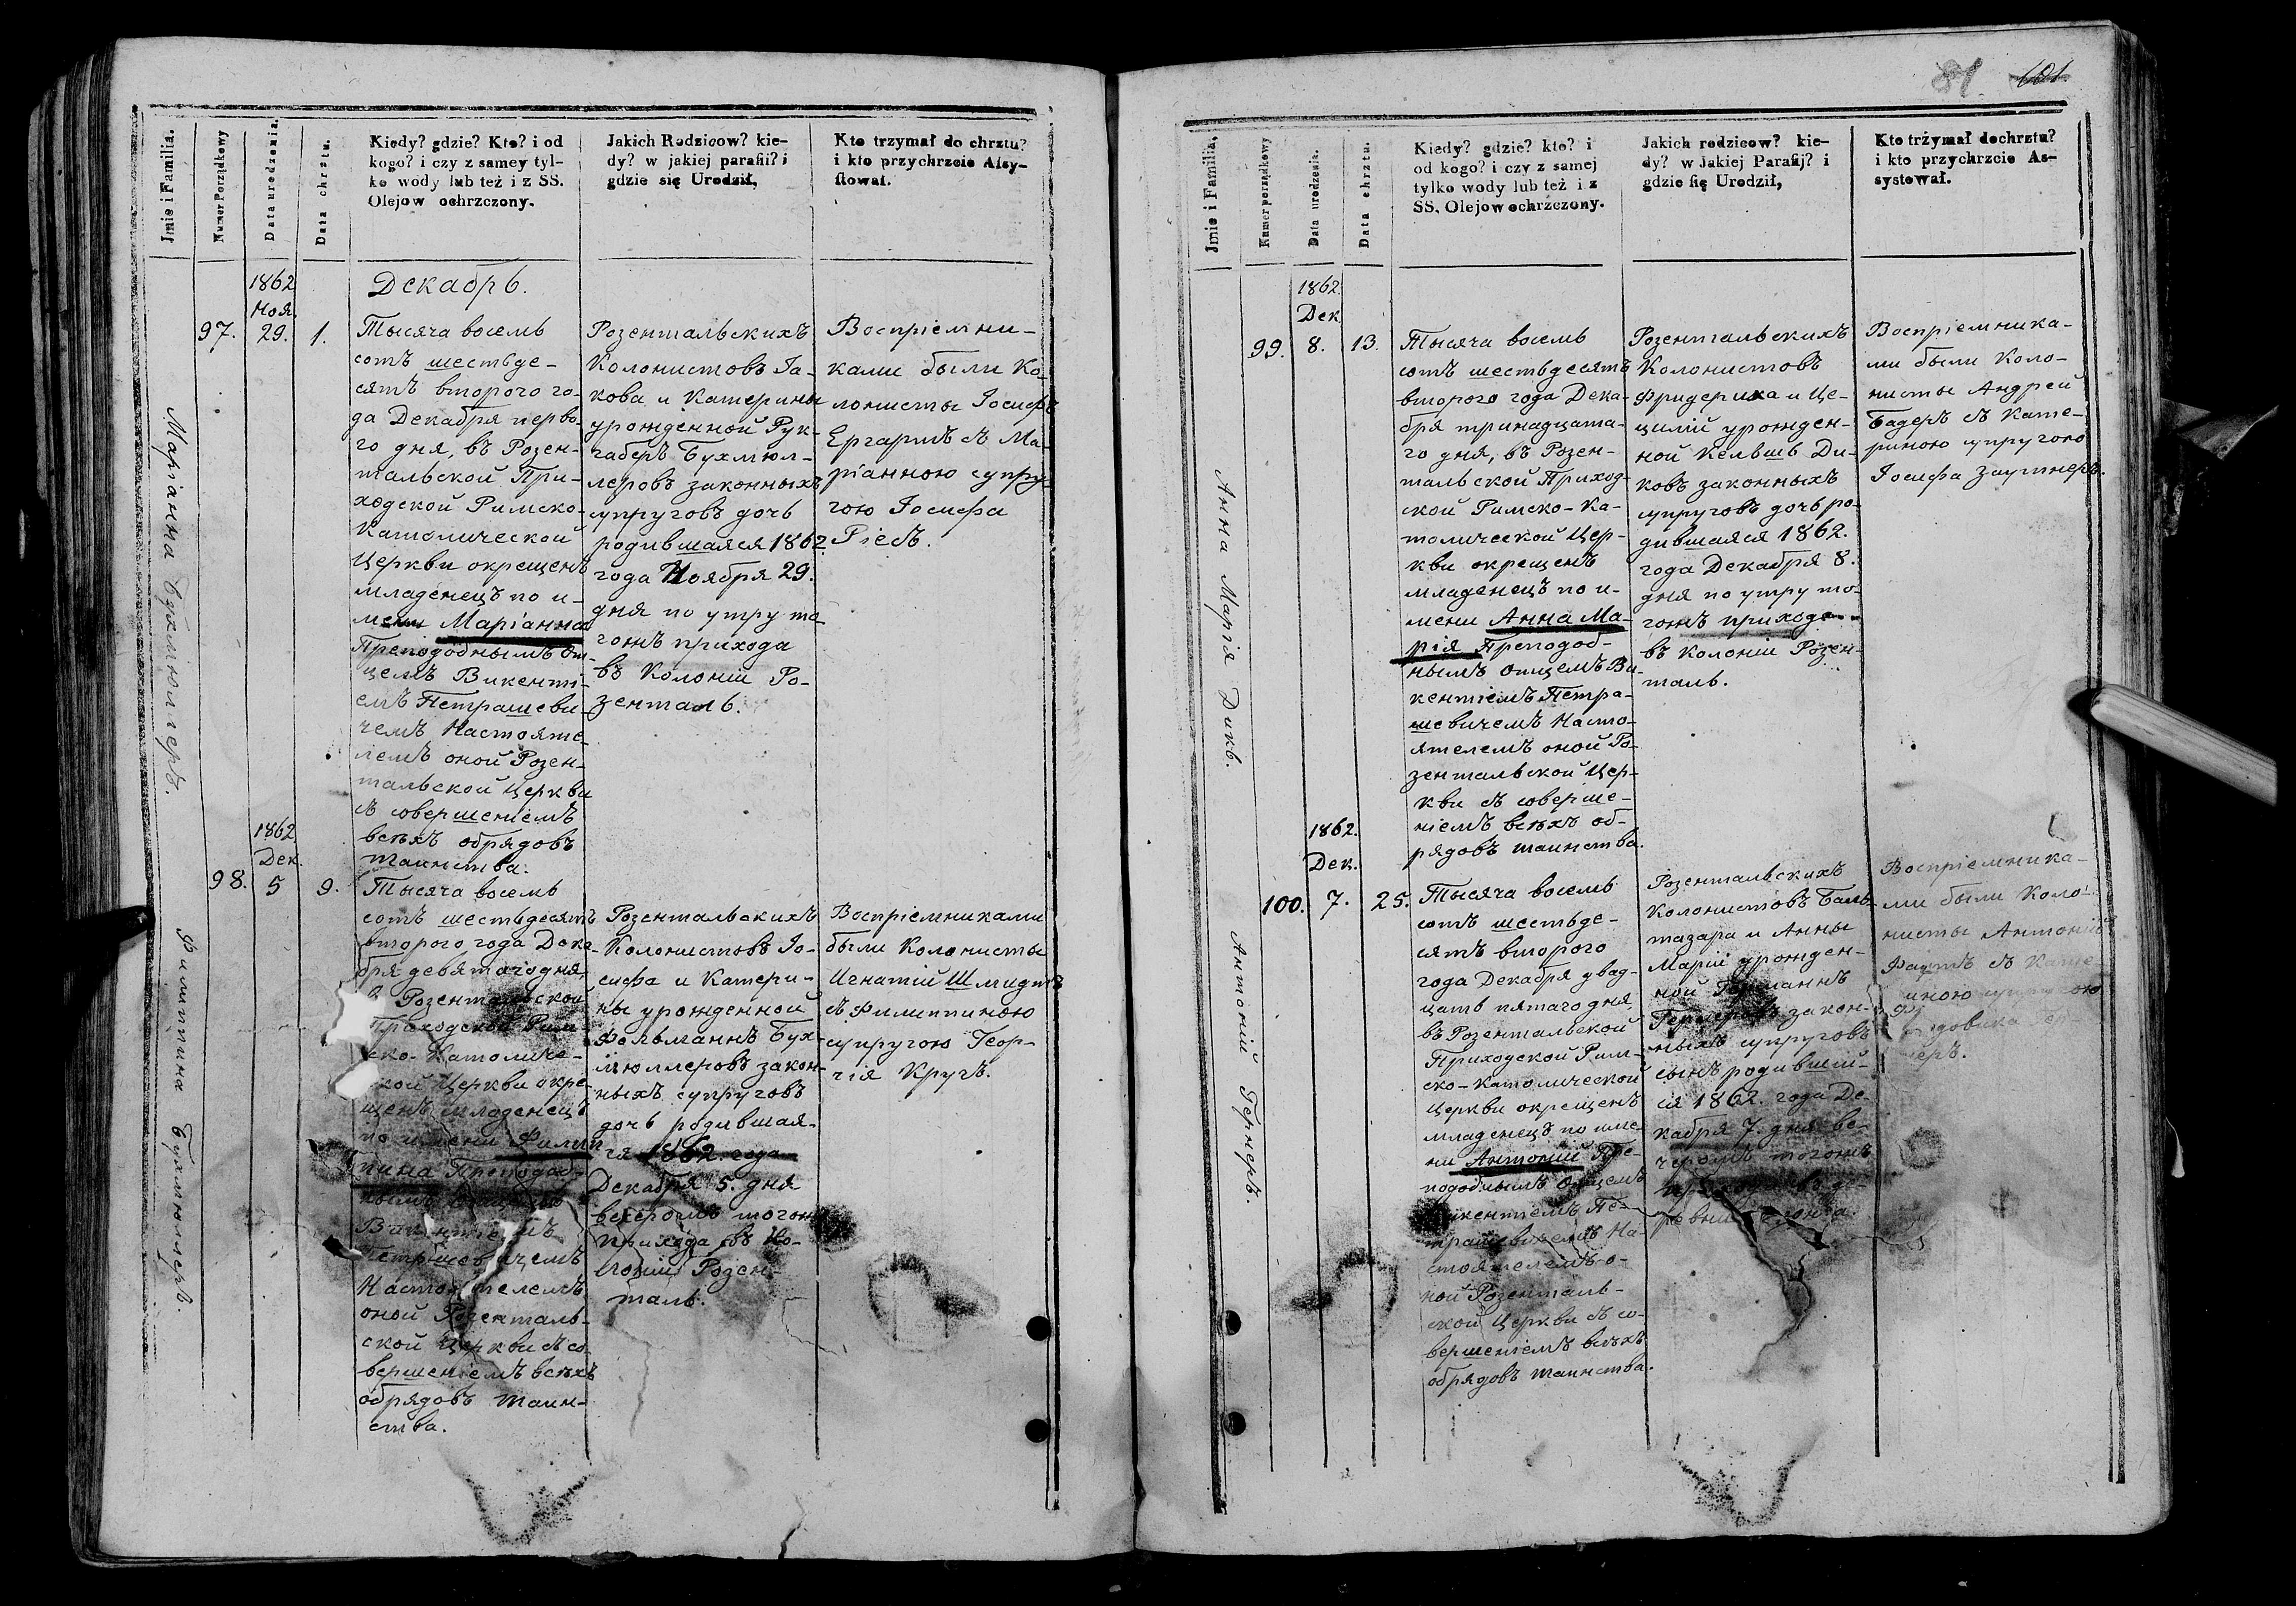 Jmie i Familia.
Numer Porządkowy
Data urodzenia.
Data chrztu.
Kiedy? gdzie? Kto? i od
kogo? i czy z samey tyl-
ko wody lub też i z SS.
Olejow ochrzczony.
Jakich Rodzicow? kie-
dy? w jakiej parafii? i
gdzie się Urodził,
Kto trzymał do chrztu?
i kto przychrzcie Assy-
stował.
Маріанна Бухмюллеръ.
97.
1862
Ноя.
29.
1.
Декабрь.
Тысяча восемь
сотъ шестьде-
сятъ второго го-
да Декабря перво-
го дня, въ Розен-
тальской При-
ходской Римско-
Католической
Церкви окрещенъ
младенецъ по и-
мени Маріанна
Преподобнымъ От-
цемъ Викенті-
емъ Петрашеви-
чемъ Настояте-
лемъ оной Розен-
тальской Церкви
съ совершеніемъ
всѣхъ обрядовъ
таинства.
Розентальскихъ
Колонистовъ Іа-
кова и Катерины
урожденной Рук-
габеръ Бухмюл-
леровъ законныхъ
супруговъ дочь
родившаяся 1862
года Ноября 29.
дня по утру то-
гожъ прихода
въ Колоніи Ро-
зенталь.
Воспріемни-
ками были Ко-
лонисты Іосифъ
Ергаритъ съ Ма-
ріанною супру-
гою Іосифа
Рісъ.
Филиппина Бухмюллеръ.
98.
1862
Дек.
5
9.
Тысяча восемь
сотъ шестьдесятъ
второго года Дека-
бря девятаго дня,
Розентальской
Приходской Рим-
ско-Католиче-
ской Церкви окре-
щенъ младенецъ
по имени Филип-
пина Преподоб-
нымъ
Викентіемъ
Петрашевичемъ
Настоятелемъ
оной Розенталь-
ской Церкви съ со-
вершеніемъ всѣхъ
обрядовъ таин-
ства.
Розентальскихъ
Колонистовъ Іо-
сифа и Катери-
ны урожденной
Фельманнъ Бух-
мюллеровъ закон-
ныхъ супруговъ
дочь родившая-
ся 1862. года
Декабря 5. дня
вечеромъ тогожъ
прихода въ Ко-
лоніи Розен-
таль.
Воспріемниками
были Колонисты
Игнатій Шмидтъ
съ Филиппиною
супругою Геор-
гія Кругъ.
81. 101
Jmie i Familia.
Numer porządkowy
Data urodzenia.
Data chrztu.
Kiedy? gdzie? kto? i
od kogo? i czy z samej
tylko wody lub też i z
SS. Olejow ochrzczony.
Jakich rodzicow? kie-
dy? w Jakiej Parafij? i
gdzie się Urodził,
Kto trżymał dochrztu?
i kto przychrzcie As-
systował.
Анна Марія Дикъ.
99.
1862.
Дек.
8.
13.
Тысяча восемь
сотъ шестьдесятъ
второго года Дека-
бря тринадцата-
го дня, въ Розен-
тальской Приход-
ской Римско-Ка-
толической Цер-
кви окрещенъ
младенецъ по и-
мени Анна Ма-
рія Преподоб-
нымъ отцемъ Ви-
кентіемъ Петра-
шевичемъ Насто-
ятелемъ оной Ро-
зентальской Цер-
кви съ соверше-
ніемъ всѣхъ об-
рядовъ таинства.
Розентальскихъ
Колонистовъ
Фридериха и Це-
циліи урожден-
ной Кельшъ Ди-
ковъ законныхъ
супруговъ дочь ро-
дившаяся 1862.
года Декабря 8.
дня по утру то-
гожъ прихода
въ Колоніи Розен-
таль.
Воспріемника-
ми были Коло-
нисты Андрей
Бадеръ съ Кате-
риною супругою
Іосифа Заутнеръ.
Антоній Гернеръ.
100.
1862.
Дек.
7.
25.
Тысяча восемь
сотъ шестьде-
сятъ второго
года Декабря двад-
цать пятаго дня,
въ Розентальской
Приходской Рим-
ско-Католической
Церкви окрещенъ
младенецъ по име-
ни Антоній Пре-
подобнымъ Отцемъ
Викентіемъ Пе-
трашевичемъ На-
стоятелемъ о-
ной Розенталь-
ской Церкви съ со-
вершеніемъ всѣхъ
обрядовъ таинства.
Розентальскихъ
Колонистовъ Баль-
тазара и Анны
Маріи урожден-
ной
Гернеровъ закон-
ныхъ супруговъ
сынъ родивший-
ся 1862. года Де-
кабря 7. дня ве-
черомъ тогожъ
прихода въ де-
ревни
Воспріемника-
ми были Коло-
нисты Антоній
съ Кате-
риною супругою